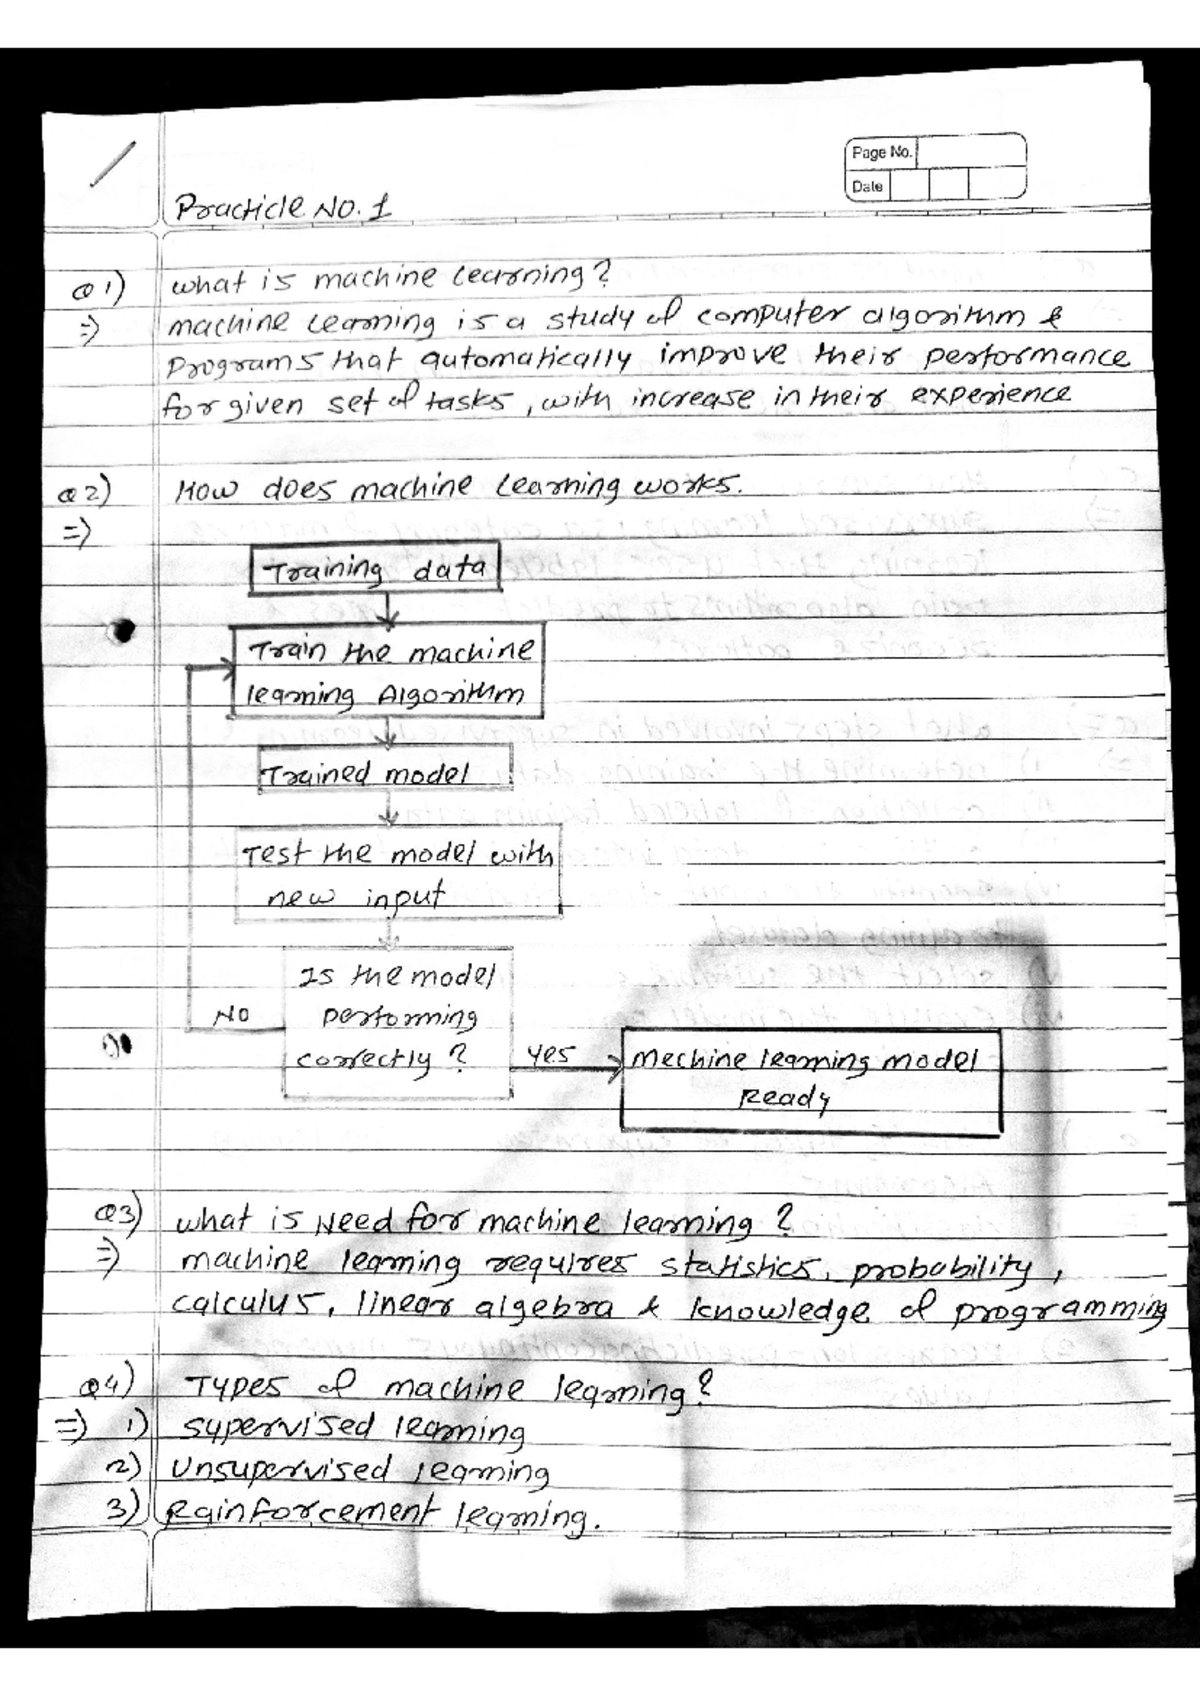 Page No.
Date
Practicle No. 1
Q 1) what is machine learning?
=> machine learning is a study of computer algorithm &
programs that automatically improve their performance
for given set of tasks, with increase in their experience
Q 2) How does machine learning works.
=>
Training data
Train the machine
learning Algorithm
Trained model
Test the model with
new input
Is the model
No performing
correctly ? Yes Mechine learning model
Ready
Q3) what is Need for machine learning ?
=> machine learning requires statistics, probability,
calculus, linear algebra & knowledge of programming
Q4) Types of machine learning?
=> 1) supervised learning
2) Unsupervised learning
3) Rainforcement learning.